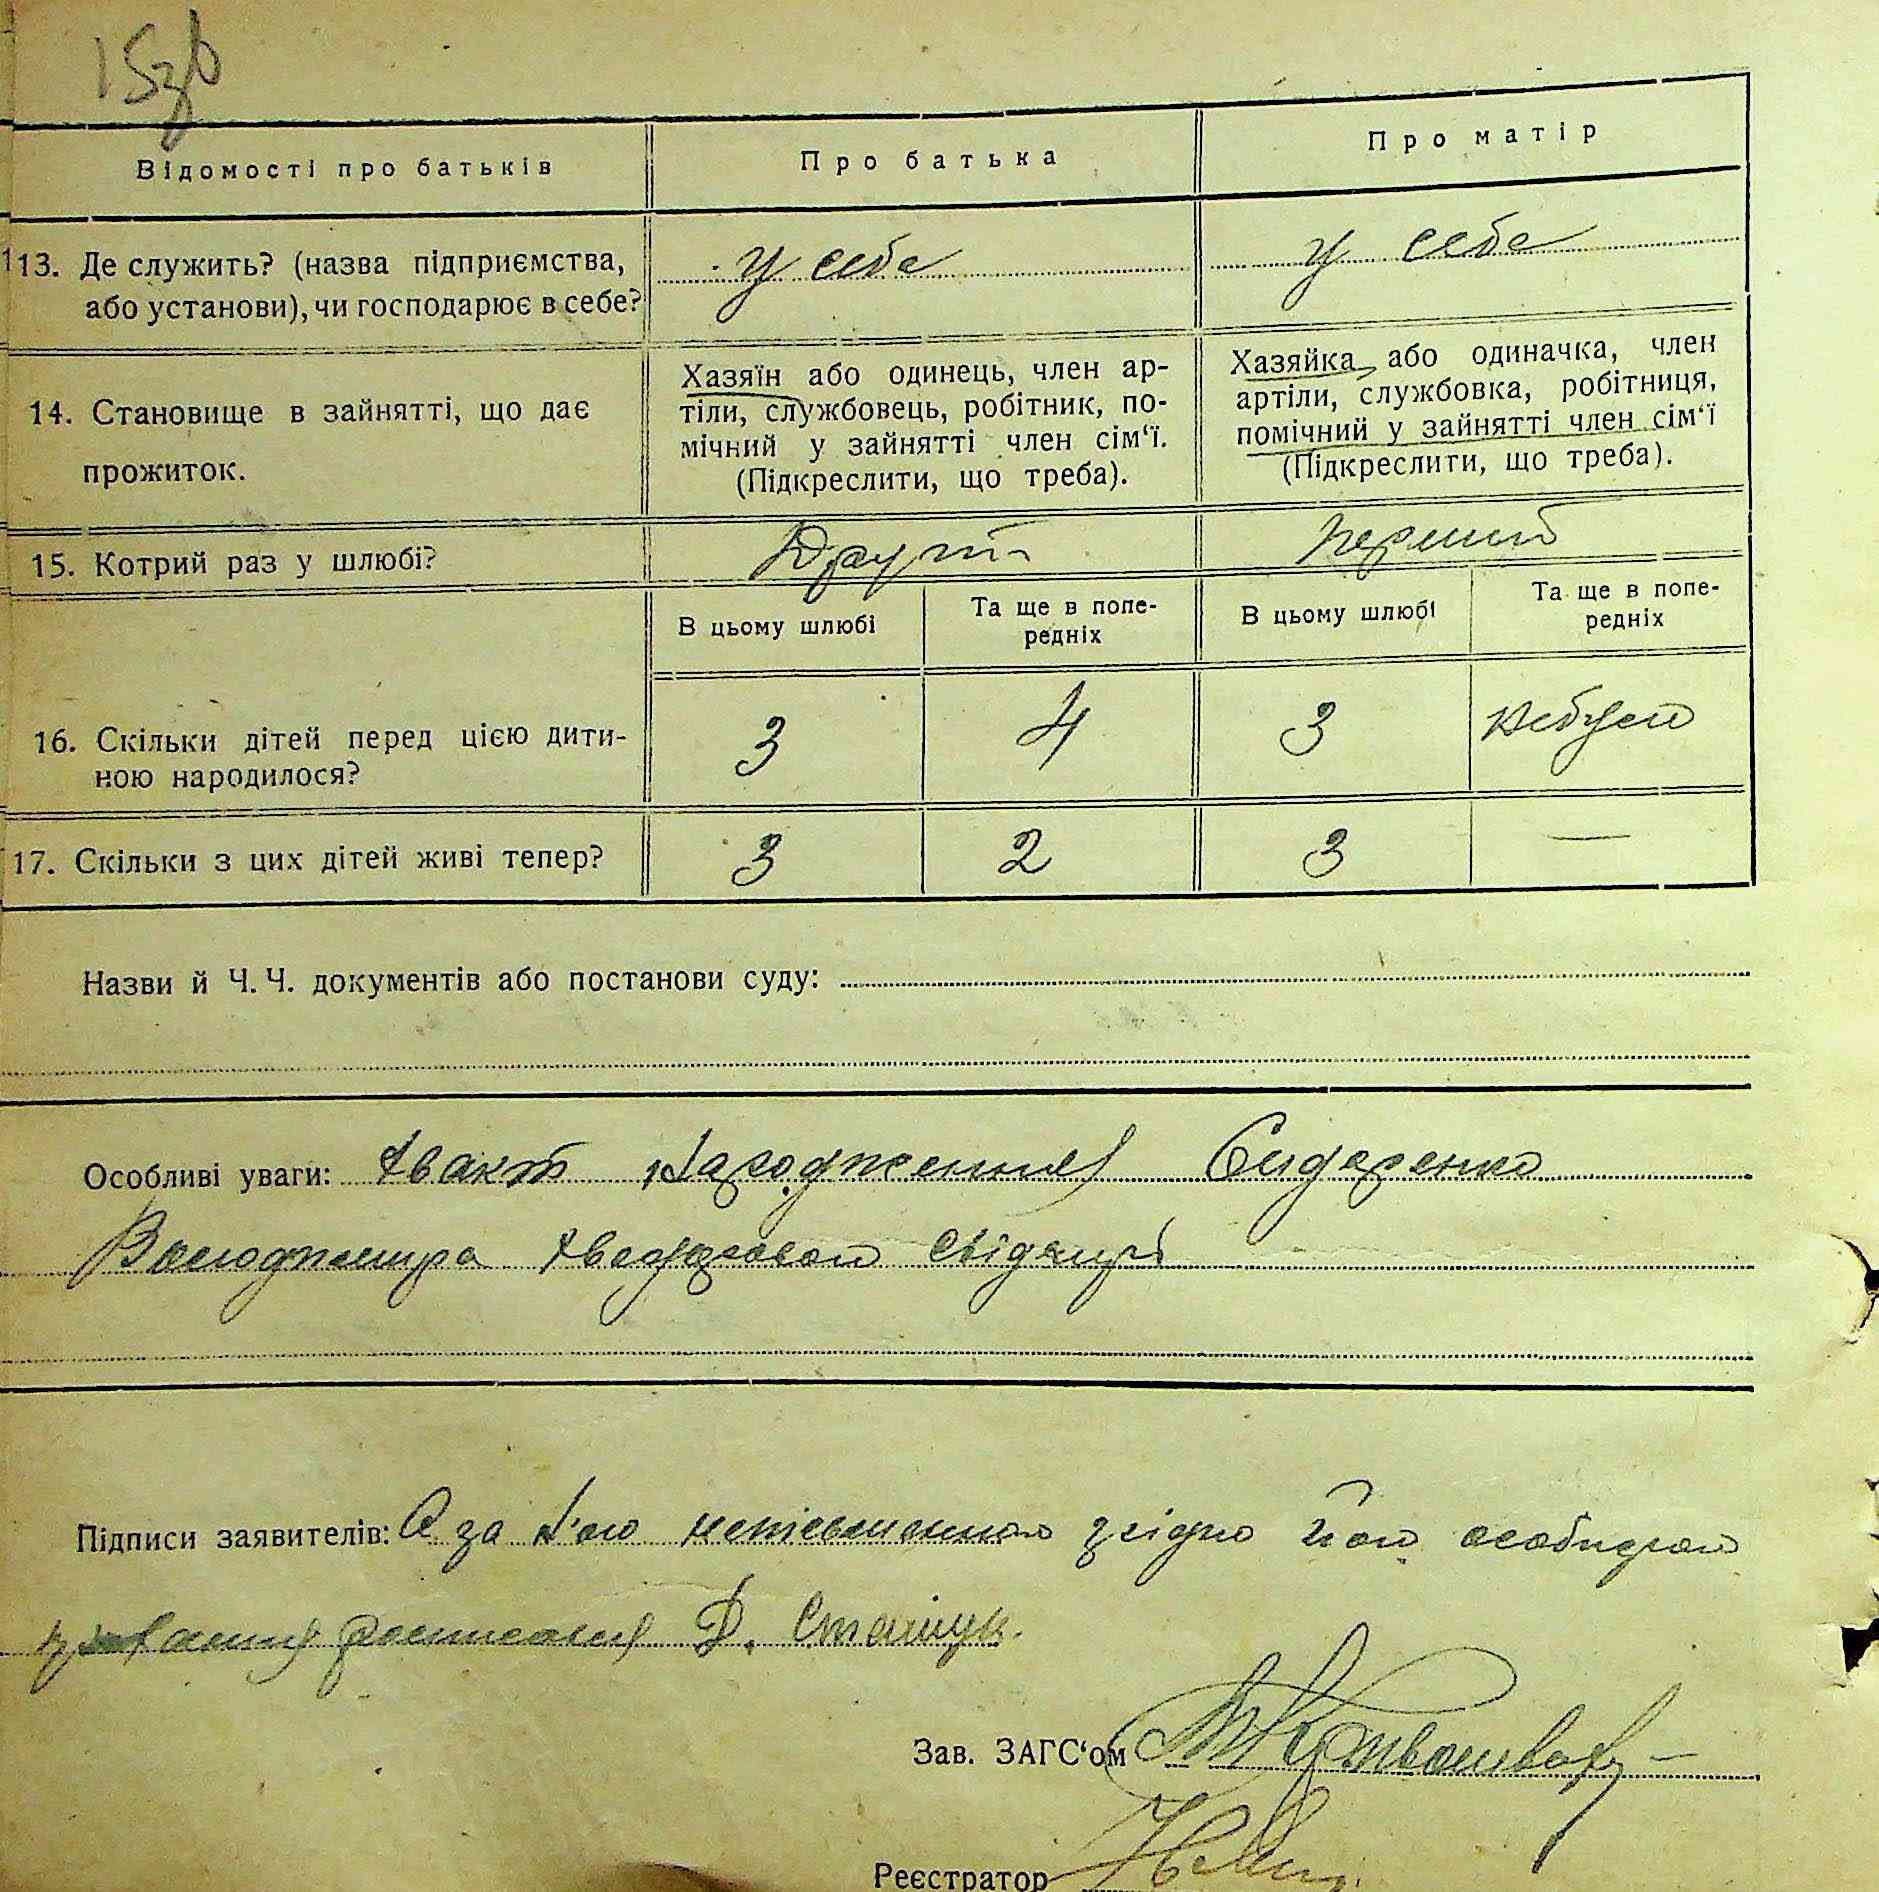 15зв
Відомості про батьків
Про батька
Про матір
13. Де служить? (назва підприємства,
або установи), чи господарює в себе?
у себе
у себе
14. Становище в зайнятті, що дає
прожиток.
Хазяїн або одинець, член ар-
тіли, службовець, робітник, по-
мічний у зайнятті член сім‘ї.
(Підкреслити, що треба).
Хазяйка або одиначка, член
артіли, службовка, робітниця,
помічний у зайнятті член сім‘ї
(Підкреслити, що треба).
15. Котрий раз у шлюбі?
перший
В цьому шлюбі
Та ще в попе-
редніх
В цьому шлюбі
Та ще в попе-
редніх
16. Скільки дітей перед цією дити-
ною народилося?
3
4
3
17. Скільки з цих дітей живі тепер?
3
2
3
—
Назви й Ч. Ч. документів або постанови суду:
Особливі уваги: народження Сидоренко
Володимира
Підписи заявителів: А за його згідно його
Д. Сташук.
Зав. ЗАГС‘ом
Реєстратор